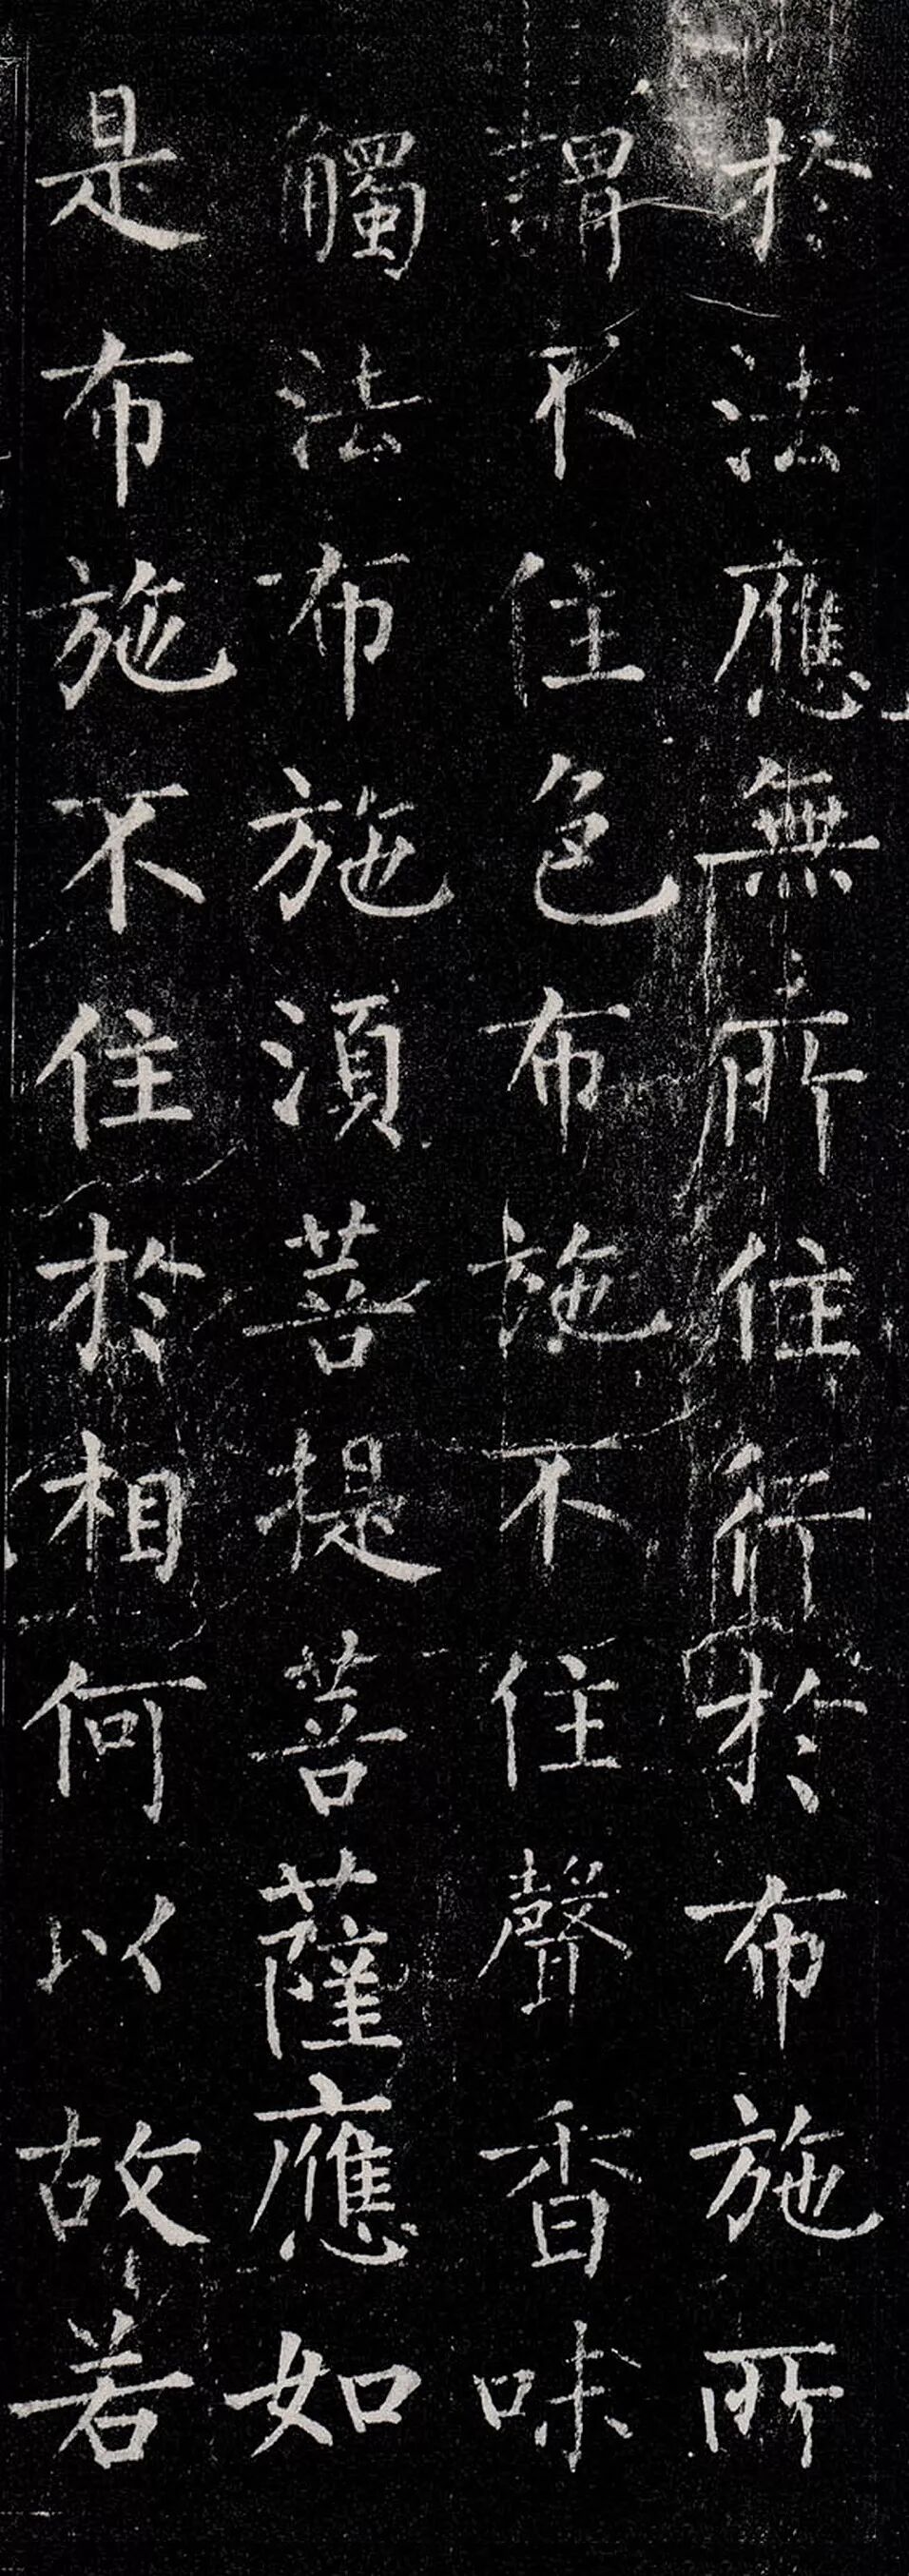 於法應無所住行於布施所
謂不住色布施不住聲香味
觸法布施須菩提菩薩應如
是布施不住於相何以故若